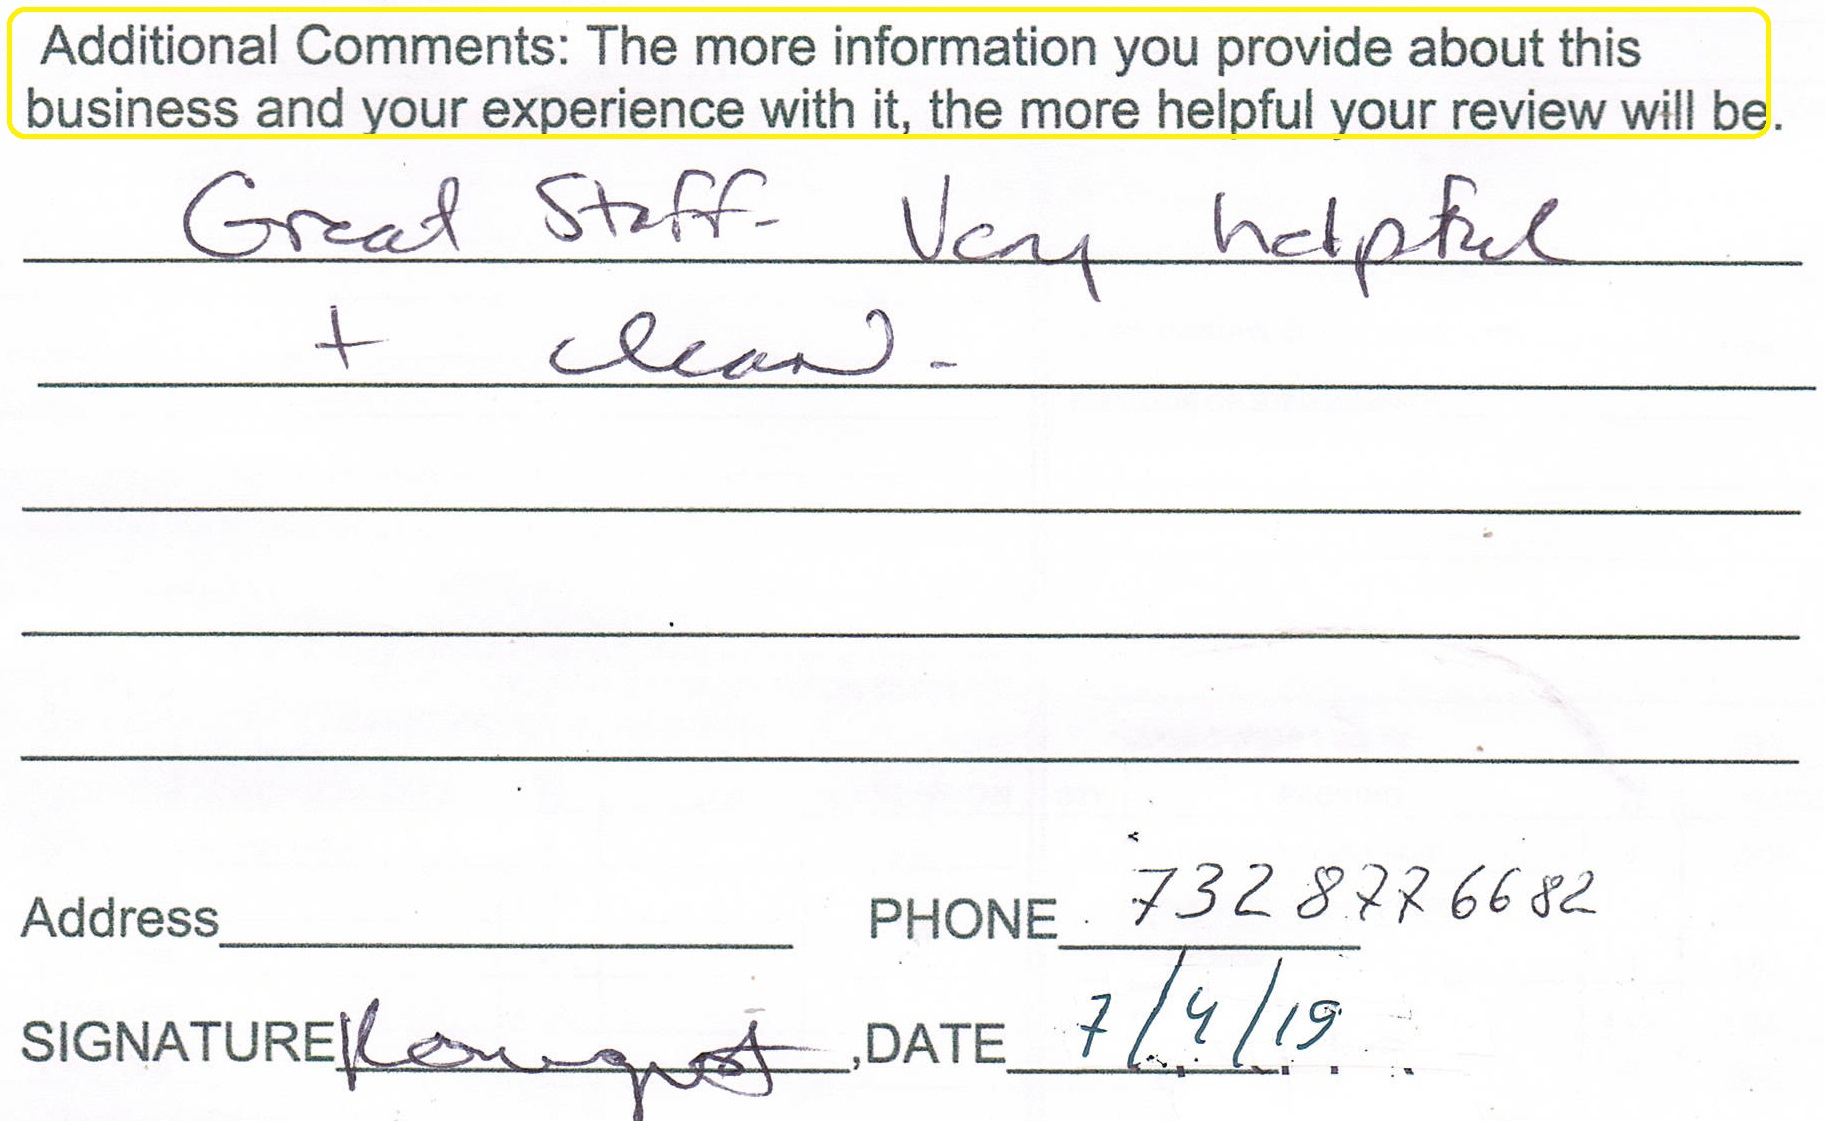 Additional Comments: The more information you provide about this
business and your experience with it, the more helpful your review will be.
Great Staff. Very helpful
+ clean.
Address PHONE 732 877 6682
SIGNATURE , DATE 7/4/19